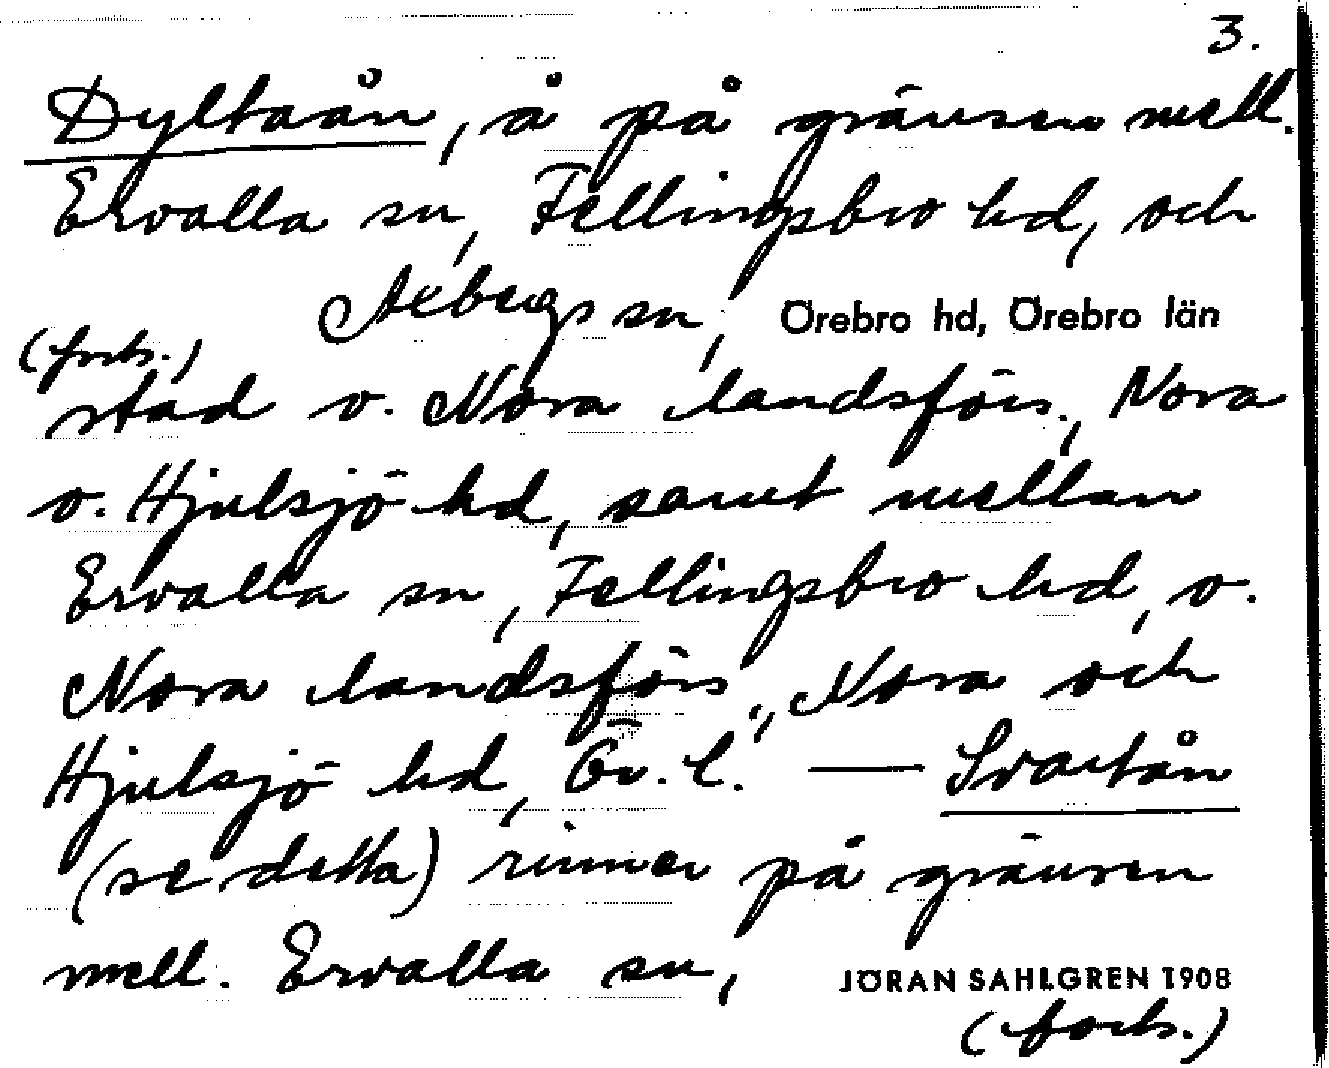 3.
Dyltaån, å på gränsen mell.
Ervalla sn, Fellingsbro hd, och
Axbergs sn, Örebro hd, Örebro län
(forts.)
stad o. Nora landsförs., Nora
o. Hjulsjö hd, samt mellan
Ervalla sn, Fellingsbro hd, o.
Nora landsförs., Nora och
Hjulsjö hd, Ör. l. — Svartån
(se detta) rinner på gränsen
mell. Ervalla sn,
JÖRAN SAHLGREN 1908
(forts.)